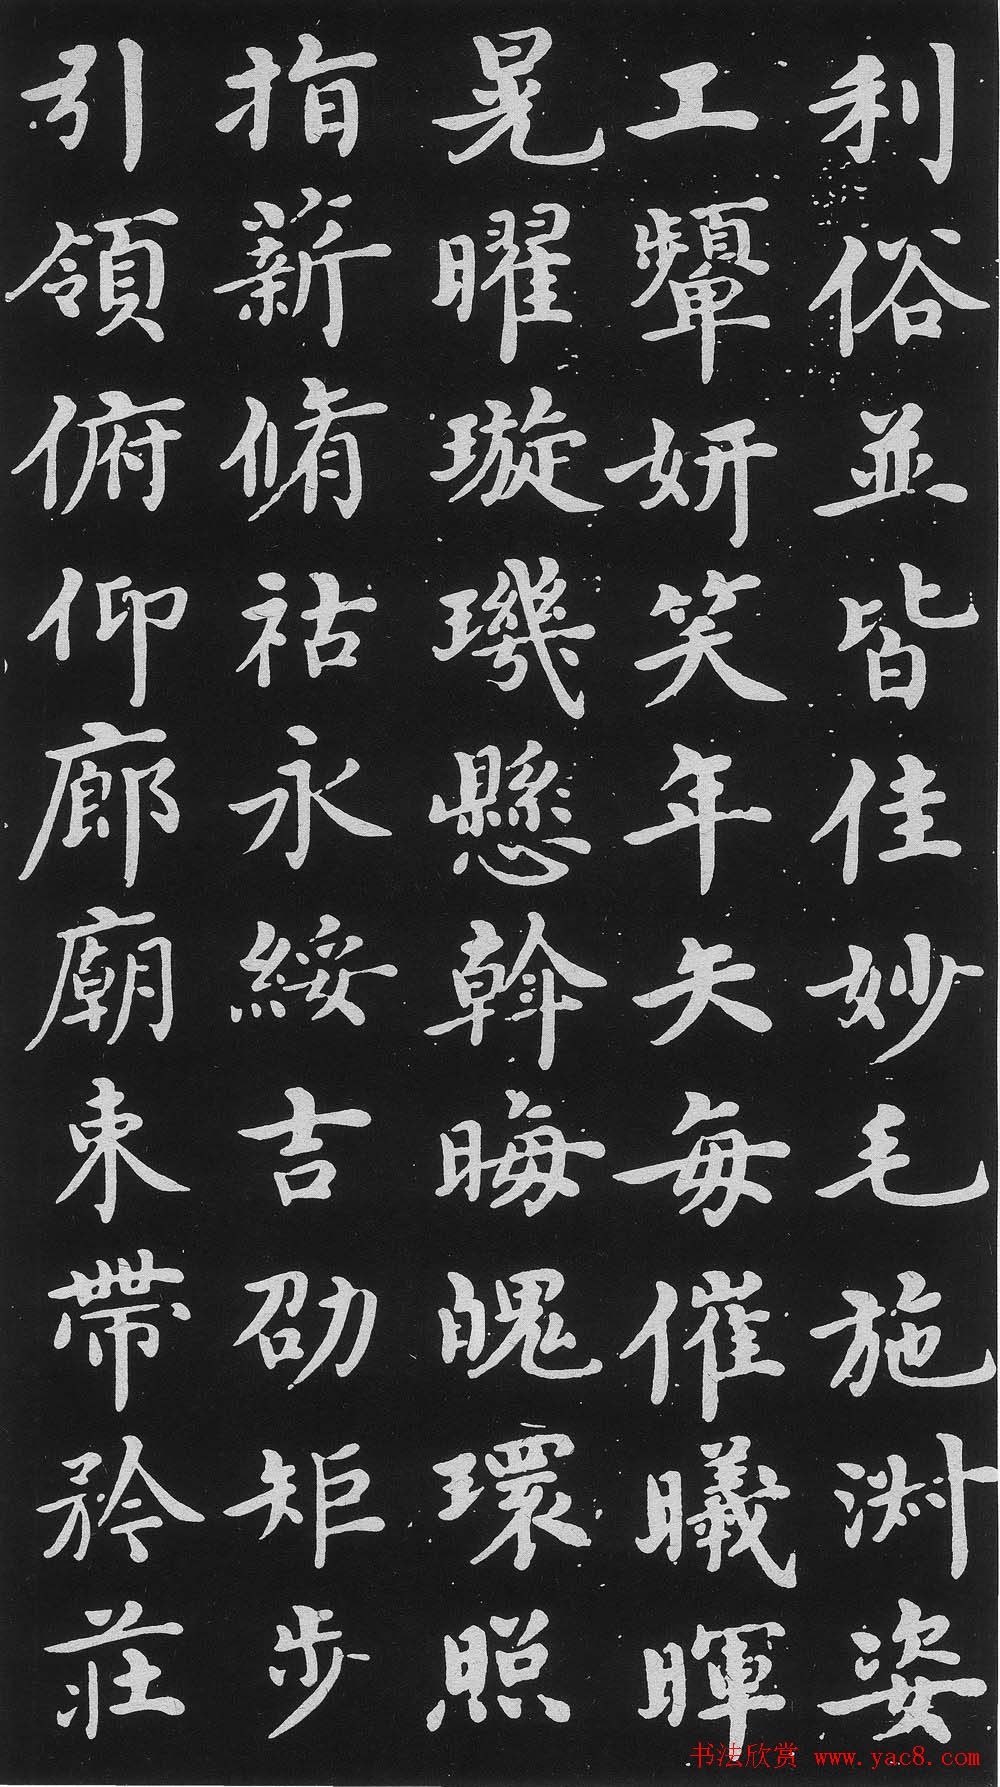 利俗並皆佳妙毛施淵姿
工顰妍笑年矢每催曦暉
晃曜璇璣懸斡晦魄環照
指薪脩祜永綏吉劭矩步
引領俯仰廊廟束帶矜莊
书法欣赏 www.yac8.com